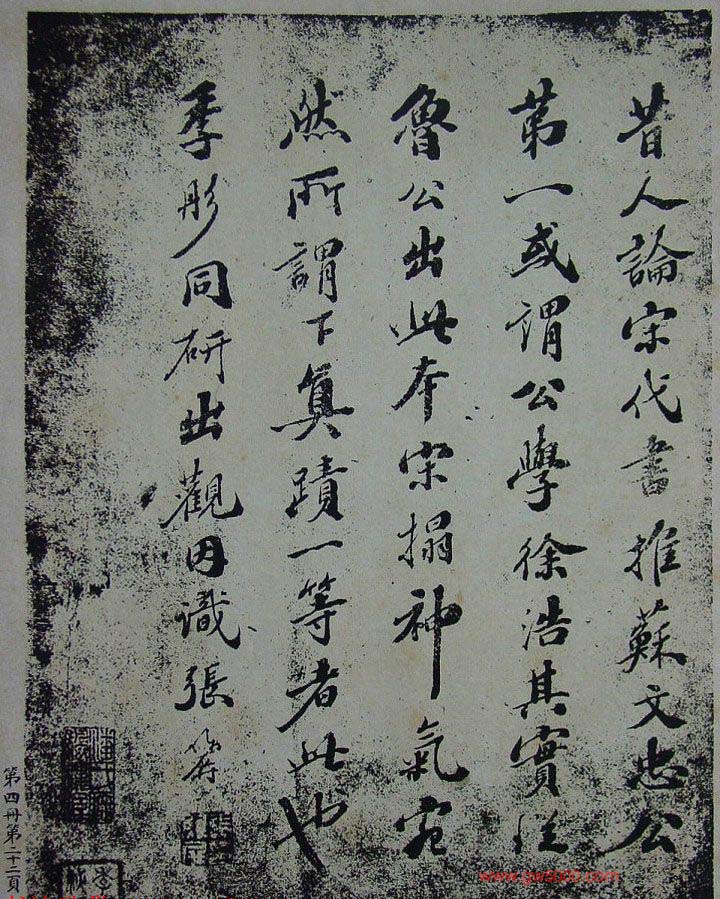 昔人論宋代書推蘇文忠公
第一或謂公學徐浩其實從
魯公出此本宋搨神氣宛
然所謂下真蹟一等者此也
季彤同硏出觀因識張
第四冊第二十二頁
www.gw5000.com